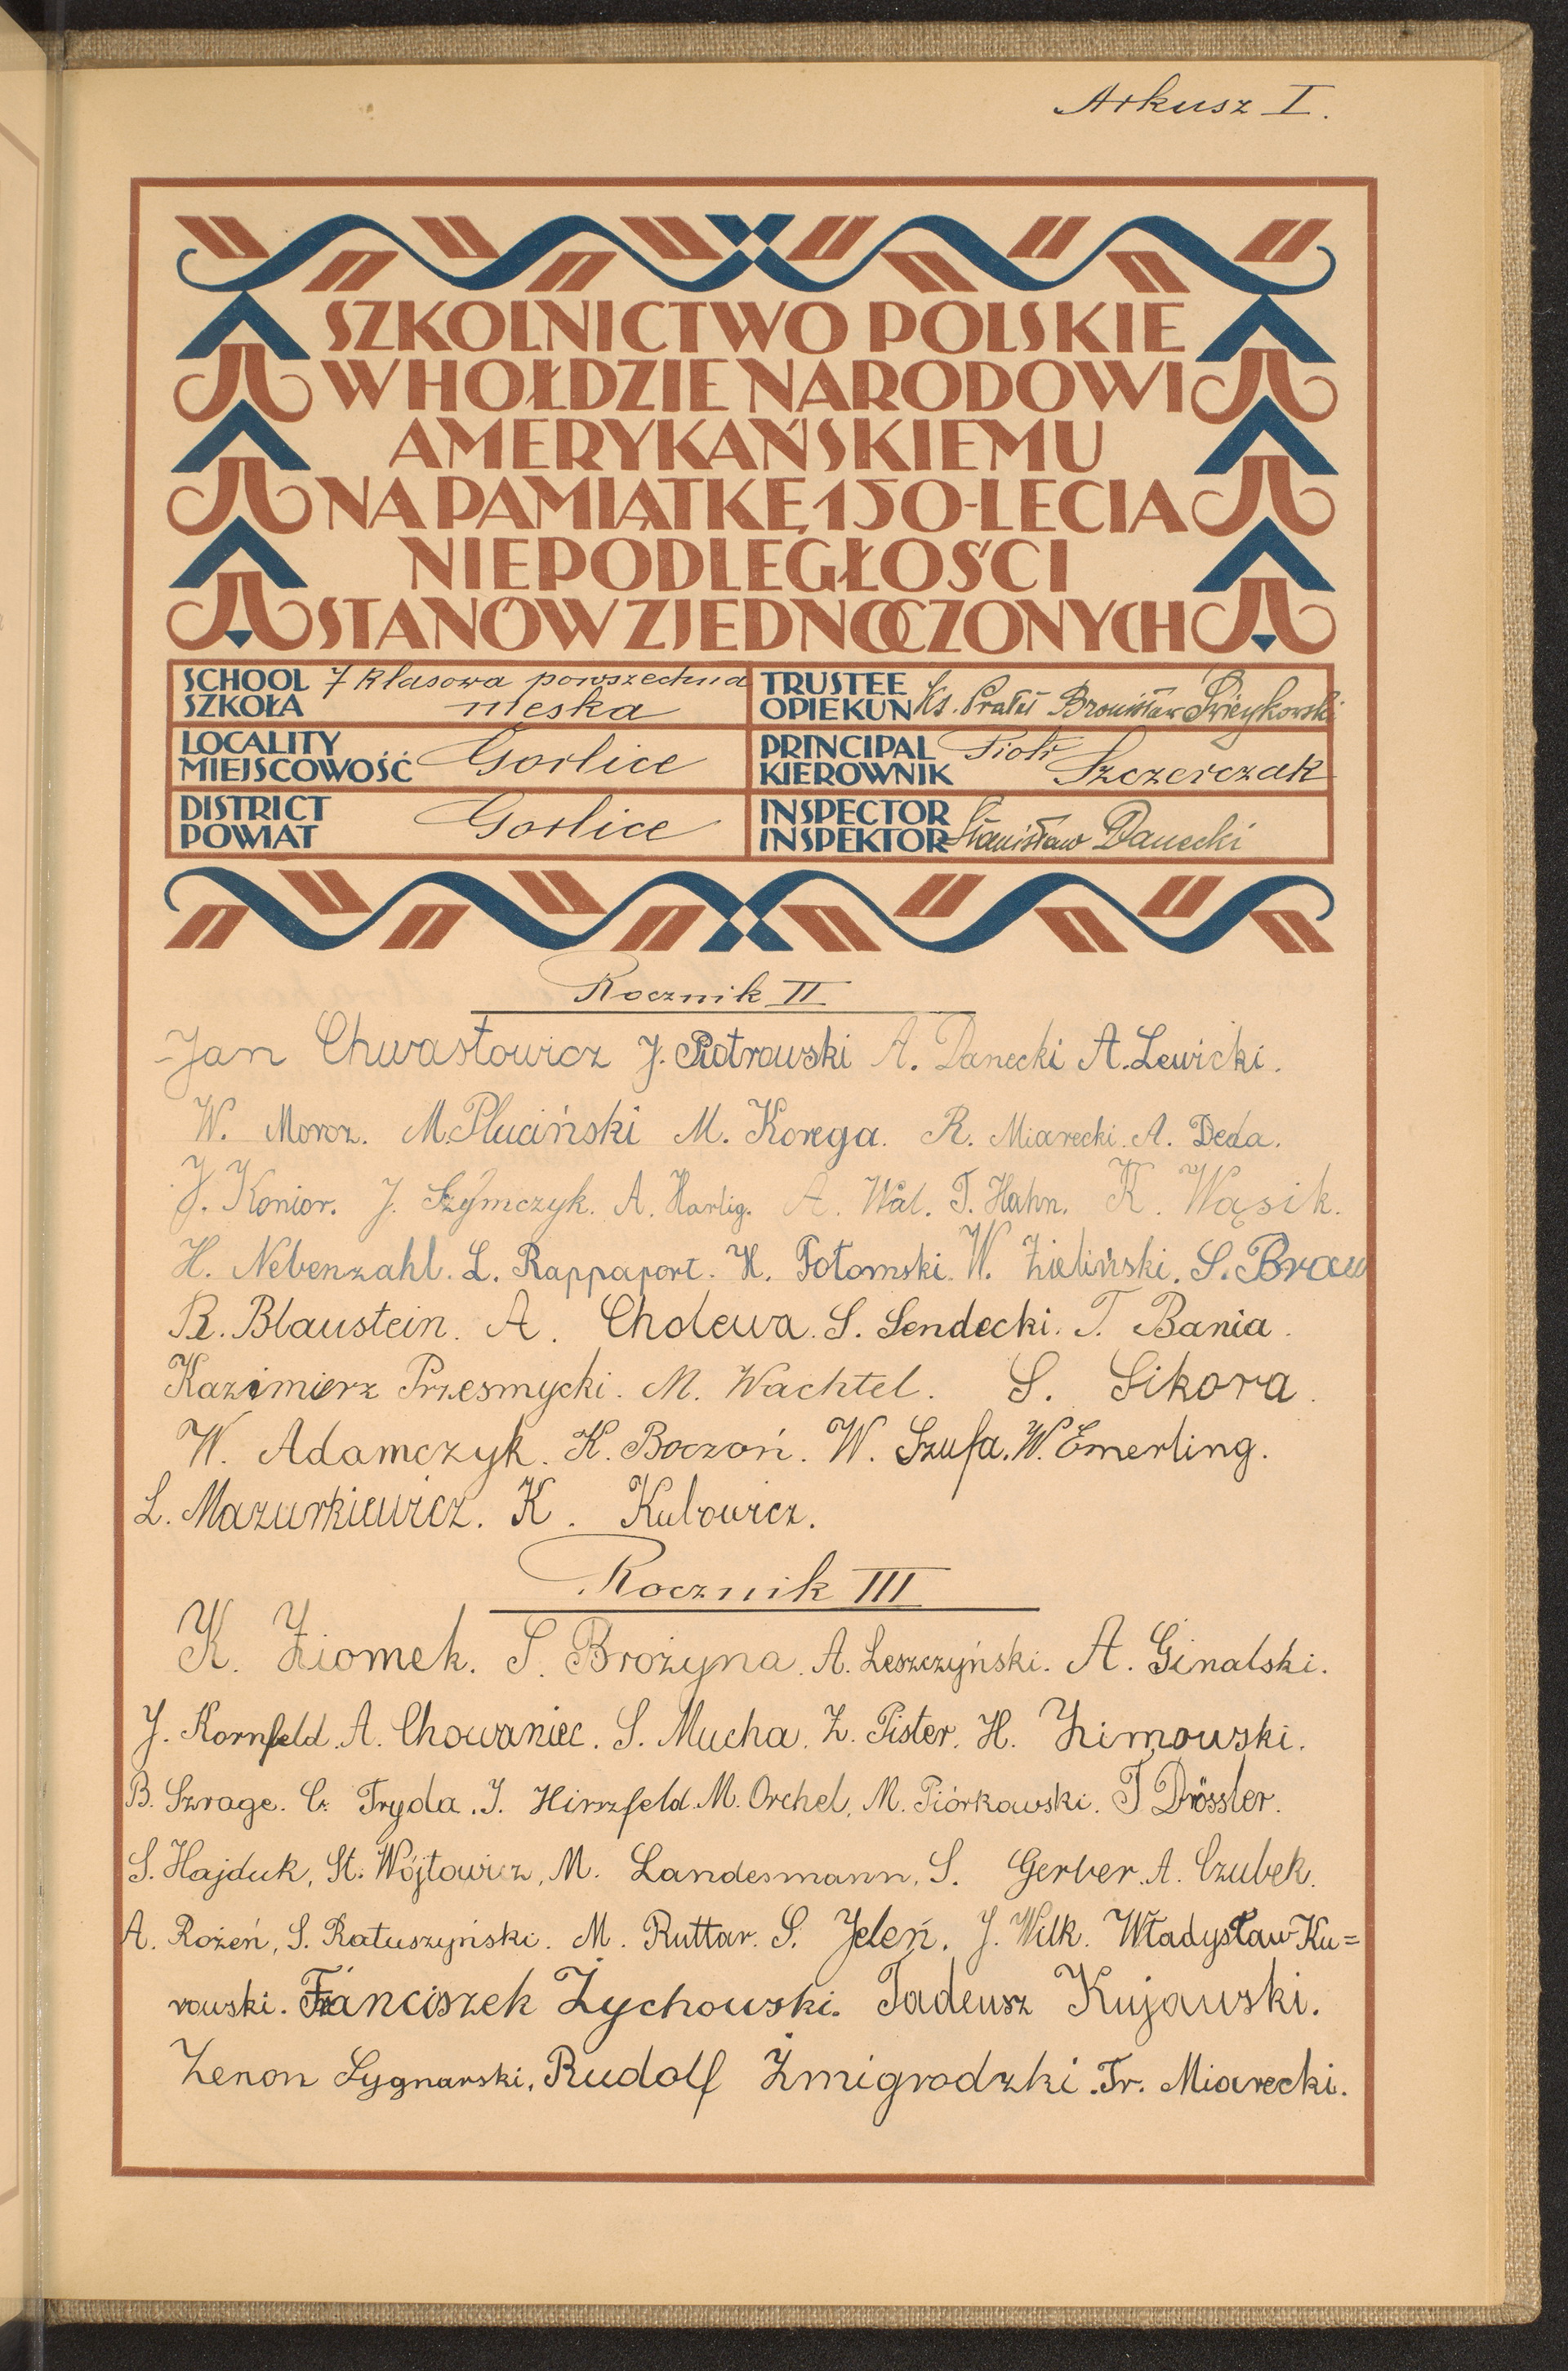 Arkusz I.
SZKOLNICTWO POLSKIE
W HOŁDZIE NARODOWI
AMERYKAŃSKIEMU
NA PAMIĄTKĘ 150-LECIA
NIEPODLEGŁOŚCI
STANÓW ZJEDNOCZONYCH
SCHOOL SZKOŁA 7 klasowa powszechna męska
TRUSTEE OPIEKUN Ks. Prałat Bronisław Świeykowski
LOCALITY MIEJSCOWOŚĆ Gorlice
PRINCIPAL KIEROWNIK Piotr Szczerczak
DISTRICT POWIAT Gorlice
INSPECTOR INSPEKTOR Stanisław Danecki
Rocznik II
Jan Chwastowicz J. Piotrowski A. Danecki A. Lewicki.
W. Moroz. M. Pluciński M. Korega. R. Miarecki. A. Deda.
J. Konior. J. Szymczyk. A. Hartig. A. Wal. T. Hahn. K. Wąsik.
H. Nebenzahl. L. Rappaport. H. Potomski. W. Zieliński. S. Brau
R. Blaustein. A. Cholewa. S. Sendecki. T. Bania.
Kazimierz Przesmycki. M. Wachtel. S. Sikora.
W. Adamczyk. K. Boczoń. W. Szufa. W. Emerling.
L. Mazurkiewicz. K. Kulowicz.
Rocznik III
K. Ziomek. S. Brożyna. A. Leszczyński. A. Ginalski.
J. Kornfeld. A. Chowaniec. S. Mucha. Z. Pister. H. Zimowski.
B. Szrage. C. Tryda. J. Hirszfeld. M. Orchel, M. Piórkowski. T Drössler.
S. Hajduk, St. Wójtowicz, M. Landesmann, S. Gerber. A. Czubek.
A. Rożeń, S. Ratuszyński. M. Ruttar. S. Jeleń. J. Wilk. Władysław Ku=
rowski. Franciszek Żychowski. Tadeusz Kujawski.
Zenon Sygnarski, Rudolf Żmigrodzki. Fr. Miarecki.